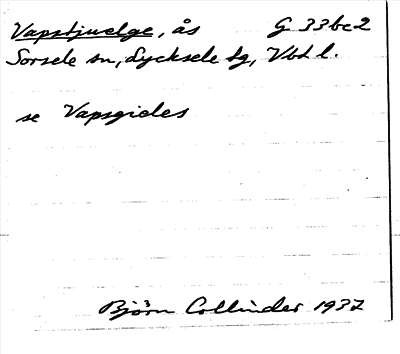 Vapstjuelge, ås G 33bc2
Sorsele sn, Lycksele lg, Vbtl.
se Vapsgieles
Björn Collinder 1937